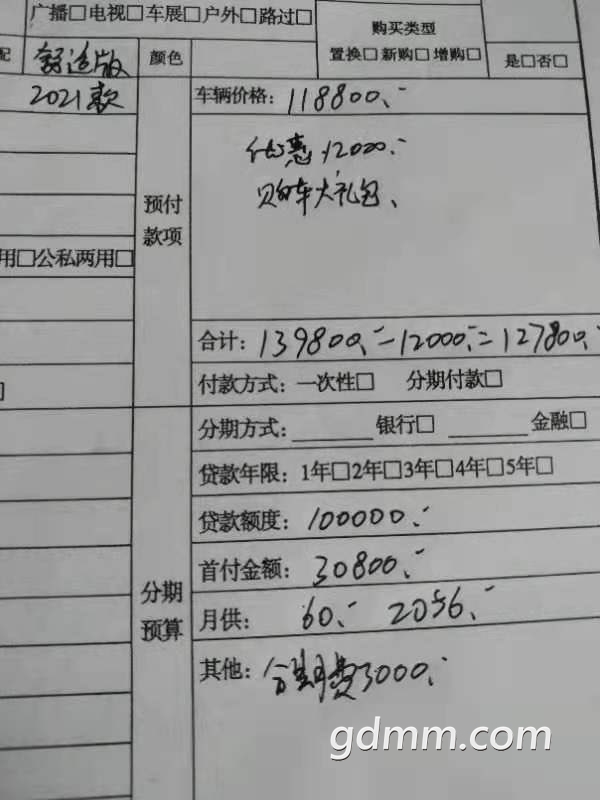 广播□电视□车展□户外□路过□
购买类型
置换□新购□增购□
是□否□
配
舒适版
颜色
2021款
车辆价格：118800.-
优惠12000.-
购车大礼包、
预付
款项
用□公私两用□
合计：139800.-－12000.-=127800.-
付款方式：一次性□ 分期付款□
分期方式：______银行□ ______金融□
贷款年限：1年□2年□3年□4年□5年□
贷款额度：100000.-
首付金额：30800.-
分期
预算
月供： 60.- 2056.-
其他：分期费3000.-
gdmm.com